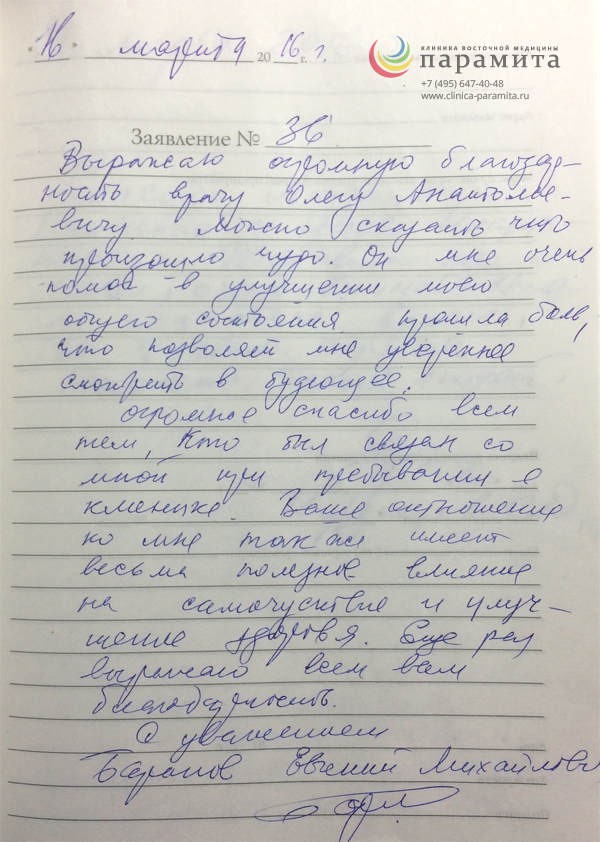 «16» марта 2016 г.
КЛИНИКА ВОСТОЧНОЙ МЕДИЦИНЫ
ПАРАМИТА
+7 (495) 647-40-48
www.clinica-paramita.ru
Заявление № 36
Выражаю огромную благодар-
ность врачу Олегу Анатолье-
вичу. Можно сказать что
произошло чудо. Он мне очень
помог в улучшении моего
общего состояния прошла боль,
что позволяет мне увереннее
смотреть в будующее.
огромное спасибо всем
тем, кто был связан со
мной при пребывании в
клинике. Ваше отношение
ко мне также имеет
весьма полезное влияние
на самочуствие и улуч-
шение здоровья. Еще раз
выражаю всем вам
благодарность.
С уважением
Баранов Евгений Михайлович